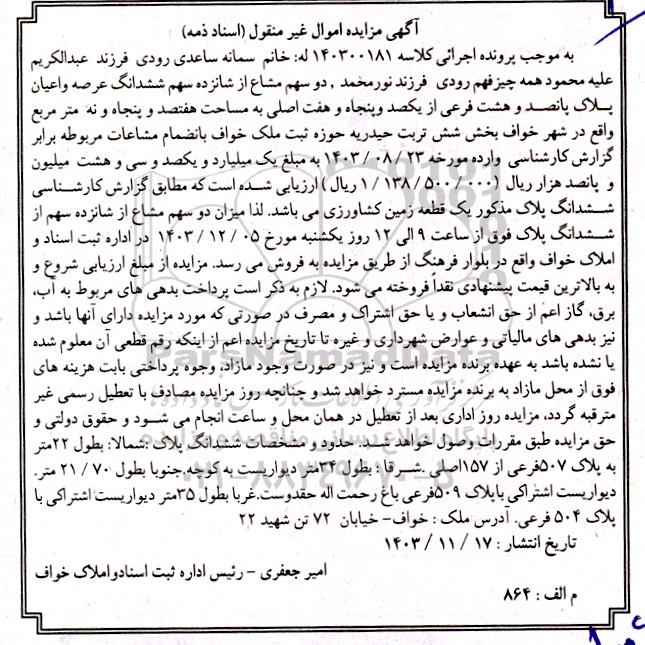 آگهی مزایده اموال غیر منقول (اسناد ذمه)
به موجب پرونده اجرائی کلاسه ۱۴۰۳۰۰۱۸۱ له: خانم سمانه ساعدی رودی فرزند عبدالکریم
علیه محمود همه چیزفهم رودی فرزند نورمحمد , دو سهم مشاع از شانزده سهم ششدانگ عرصه واعیان
پلاک پانصد و هشت فرعی از یکصد وپنجاه و هفت اصلی به مساحت هفتصد و پنجاه و نه متر مربع
واقع در شهر خواف بخش شش تربت حیدریه حوزه ثبت ملک خواف بانضمام مشاعات مربوطه برابر
گزارش کارشناسی وارده مورخه ۲۳ / ۰۸ / ۱۴۰۳ به مبلغ یک میلیارد و یکصد و سی و هشت میلیون
و پانصد هزار ریال (۰۰۰/ ۵۰۰/ ۱۳۸/ ۱ ریال) ارزیابی شده است که مطابق گزارش کارشناسی
ششدانگ پلاک مذکور یک قطعه زمین کشاورزی می باشد. لذا میزان دو سهم مشاع از شانزده سهم از
ششدانگ پلاک فوق از ساعت ۹ الی ۱۲ روز یکشنبه مورخ ۰۵ / ۱۲ / ۱۴۰۳ در اداره ثبت اسناد و
املاک خواف واقع در بلوار فرهنگ از طریق مزایده به فروش می رسد. مزایده از مبلغ ارزیابی شروع و
به بالاترین قیمت پیشنهادی نقداً فروخته می شود. لازم به ذکر است پرداخت بدهی های مربوط به آب،
برق، گاز اعم از حق انشعاب و یا حق اشتراک و مصرف در صورتی که مورد مزایده دارای آنها باشد و
نیز بدهی های مالیاتی و عوارض شهرداری و غیره تا تاریخ مزایده اعم از اینکه رقم قطعی آن معلوم شده
یا نشده باشد به عهده برنده مزایده است و نیز در صورت وجود مازاد، وجوه پرداختی بابت هزینه های
فوق از محل مازاد به برنده مزایده مسترد خواهد شد و چنانچه روز مزایده مصادف با تعطیل رسمی غیر
مترقبه گردد، مزایده روز اداری بعد از تعطیل در همان محل و ساعت انجام می شود و حقوق دولتی و
حق مزایده طبق مقررات وصول خواهد شد. حدود و مشخصات ششدانگ پلاک :شمالا: بطول ۲۲متر
به پلاک ۵۰۷فرعی از ۱۵۷اصلی .شرقا : بطول ۳۴متر دیواریست به کوچه.جنوبا بطول ۷۰ / ۲۱ متر.
دیواریست اشتراکی باپلاک ۵۰۹فرعی باغ رحمت اله حقدوست.غربا بطول ۳۵متر دیواریست اشتراکی با
پلاک ۵۰۴ فرعی. آدرس ملک : خواف- خیابان ۷۲ تن شهید ۲۲
تاریخ انتشار : ۱۷ / ۱۱ / ۱۴۰۳
امیر جعفری - رئیس اداره ثبت اسنادواملاک خواف
م الف : ۸۶۴
ParsNamadData
۰۲۱-۸۸۳۴۹۶۷۰-۵